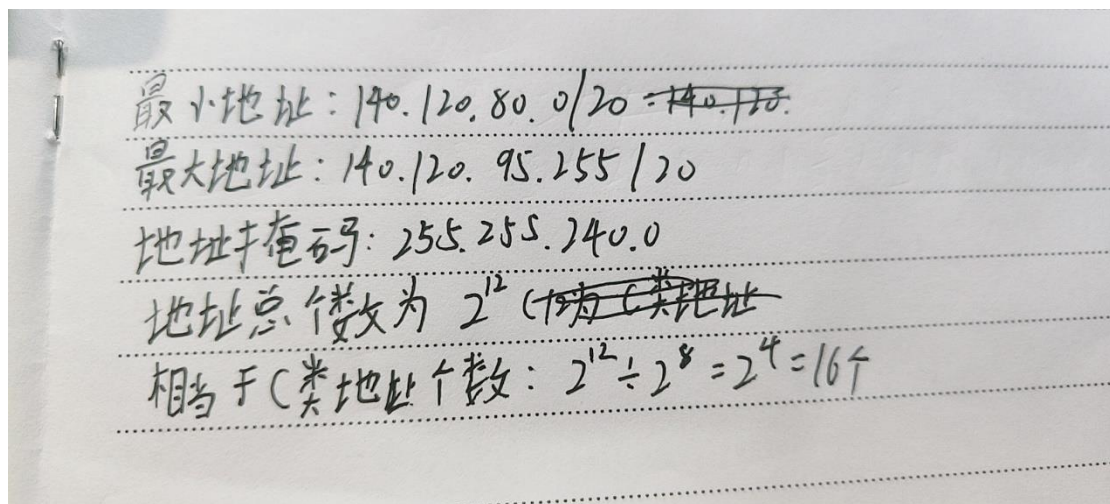 最小地址：140.120.80.0/20 = 140.120.
最大地址：140.120.95.255/20
地址掩码：255.255.240.0
地址总个数为 2¹² (均为C类地址
相当于C类地址个数：2¹²÷2⁸=2⁴=16个